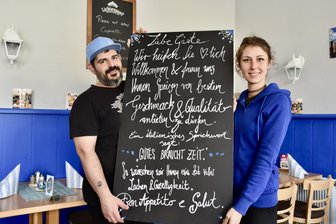 Liebe Gäste
Wir heißen Sie herzlich
Willkommen & freuen uns
Ihnen Speisen von bestem
Geschmack & Qualität
anbieten zu dürfen.
Ein italienisches Sprichwort
sagt:
"GUTES BRAUCHT ZEIT."
So wünschen wir Ihnen
Lachen & Geselligkeit.
Bon Appetito e Salut.